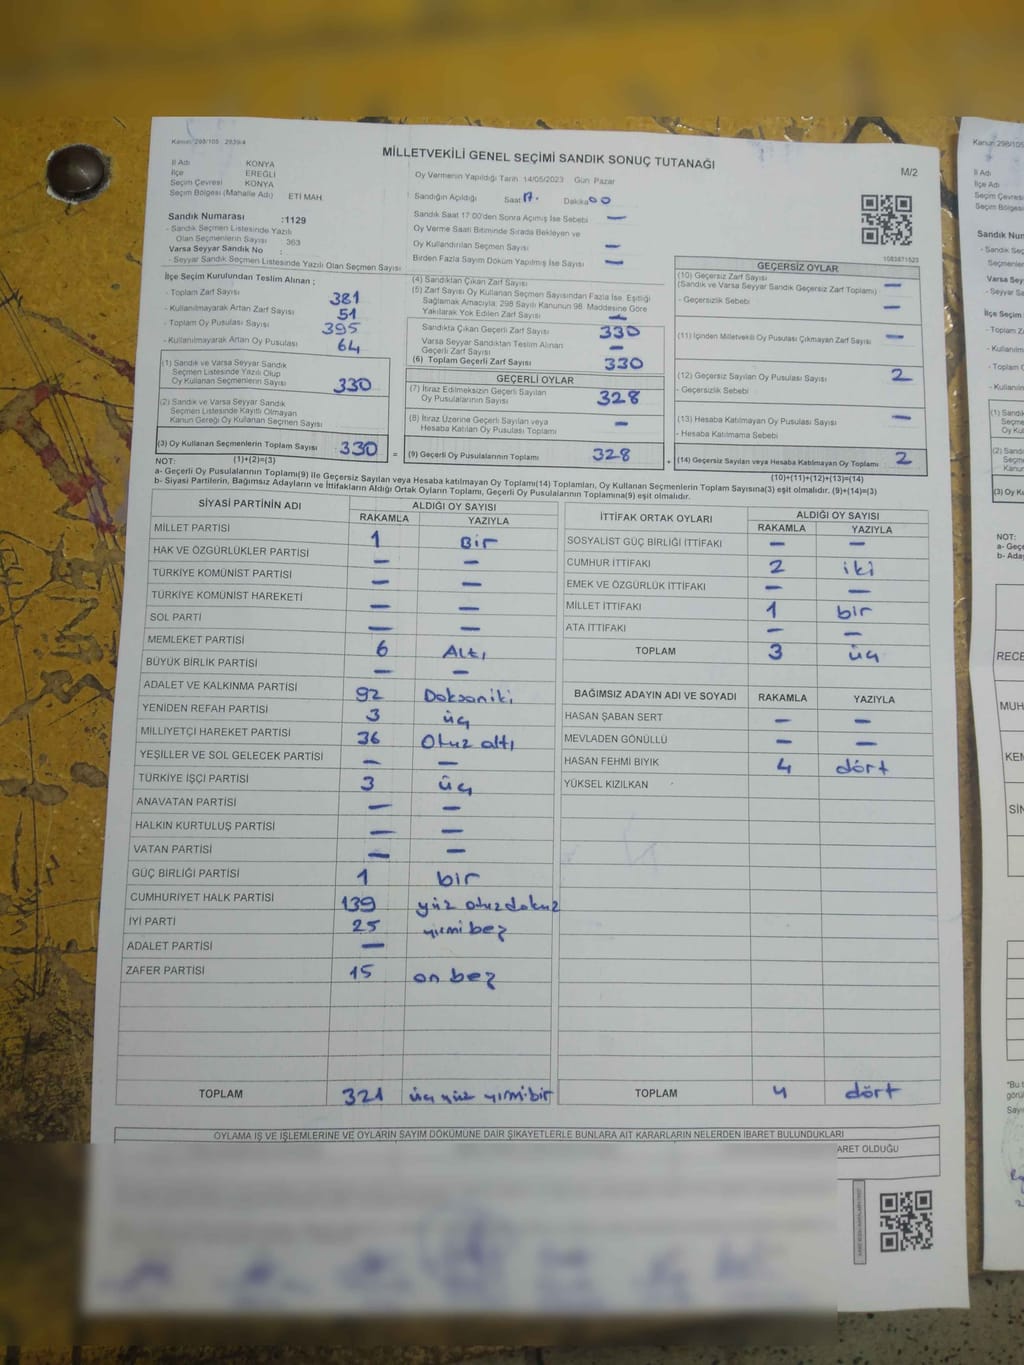 Kanun: 298/105 2839/4
MİLLETVEKİLİ GENEL SEÇİMİ SANDIK SONUÇ TUTANAĞI
M/2
İl Adı KONYA
İlçe EREĞLİ
Seçim Çevresi KONYA
Seçim Bölgesi (Mahalle Adı) ETİ MAH.
Sandık Numarası :1129
- Sandık Seçmen Listesinde Yazılı
Olan Seçmenlerin Sayısı : 363
Varsa Seyyar Sandık No :
- Seyyar Sandık Seçmen Listesinde Yazılı Olan Seçmen Sayısı
Oy Vermenin Yapıldığı Tarih 14/05/2023 Gün Pazar
Sandığın Açıldığı Saat 17. Dakika 00
Sandık Saat 17.00'den Sonra Açılmış İse Sebebi —
Oy Verme Saati Bitiminde Sırada Bekleyen ve
Oy Kullandırılan Seçmen Sayısı —
Birden Fazla Sayım Döküm Yapılmış İse Sayısı —
1083871523
İlçe Seçim Kurulundan Teslim Alınan ;
- Toplam Zarf Sayısı 381
- Kullanılmayarak Artan Zarf Sayısı 51
- Toplam Oy Pusulası Sayısı 395
- Kullanılmayarak Artan Oy Pusulası 64
(1) Sandık ve Varsa Seyyar Sandık
Seçmen Listesinde Yazılı Olup
Oy Kullanan Seçmenlerin Sayısı 330
(2) Sandık ve Varsa Seyyar Sandık
Seçmen Listesinde Kayıtlı Olmayan
Kanun Gereği Oy Kullanan Seçmen Sayısı
(3) Oy Kullanan Seçmenlerin Toplam Sayısı 330 =
(1)+(2)=(3)
(4) Sandıktan Çıkan Zarf Sayısı
(5) Zarf Sayısı Oy Kullanan Seçmen Sayısından Fazla İse, Eşitliği
Sağlamak Amacıyla; 298 Sayılı Kanunun 98. Maddesine Göre
Yakılarak Yok Edilen Zarf Sayısı —
Sandıkta Çıkan Geçerli Zarf Sayısı 330
Varsa Seyyar Sandıktan Teslim Alınan
Geçerli Zarf Sayısı —
(6) Toplam Geçerli Zarf Sayısı 330
GEÇERLİ OYLAR
(7) İtiraz Edilmeksizin Geçerli Sayılan
Oy Pusulalarının Sayısı 328
(8) İtiraz Üzerine Geçerli Sayılan veya
Hesaba Katılan Oy Pusulası Toplamı —
(9) Geçerli Oy Pusulalarının Toplamı 328 +
GEÇERSİZ OYLAR
(10) Geçersiz Zarf Sayısı
(Sandık ve Varsa Seyyar Sandık Geçersiz Zarf Toplamı) —
- Geçersizlik Sebebi —
(11) İçinden Milletvekili Oy Pusulası Çıkmayan Zarf Sayısı —
(12) Geçersiz Sayılan Oy Pusulası Sayısı 2
- Geçersizlik Sebebi
(13) Hesaba Katılmayan Oy Pusulası Sayısı —
- Hesaba Katılmama Sebebi
(14) Geçersiz Sayılan veya Hesaba Katılmayan Oy Toplamı 2
(10)+(11)+(12)+(13)=(14)
NOT:
a- Geçerli Oy Pusulalarının Toplamı(9) ile Geçersiz Sayılan veya Hesaba katılmayan Oy Pusulası Toplamı(14) Toplamları, Oy Kullanan Seçmenlerin Toplam Sayısına(3) eşit olmalıdır. (9)+(14)=(3)
b- Siyasi Partilerin, Bağımsız Adayların ve İttifakların Aldığı Ortak Oyların Toplamı, Geçerli Oy Pusulalarının Toplamına(9) eşit olmalıdır.
SİYASİ PARTİNİN ADI ALDIĞI OY SAYISI
RAKAMLA YAZIYLA
MİLLET PARTİSİ 1 Bir
HAK VE ÖZGÜRLÜKLER PARTİSİ — —
TÜRKİYE KOMÜNİST PARTİSİ — —
TÜRKİYE KOMÜNİST HAREKETİ — —
SOL PARTİ — —
MEMLEKET PARTİSİ 6 Altı
BÜYÜK BİRLİK PARTİSİ — —
ADALET VE KALKINMA PARTİSİ 92 Doksaniki
YENİDEN REFAH PARTİSİ 3 üç
MİLLİYETÇİ HAREKET PARTİSİ 36 Otuz altı
YEŞİLLER VE SOL GELECEK PARTİSİ — —
TÜRKİYE İŞÇİ PARTİSİ 3 üç
ANAVATAN PARTİSİ — —
HALKIN KURTULUŞ PARTİSİ — —
VATAN PARTİSİ — —
GÜÇ BİRLİĞİ PARTİSİ 1 bir
CUMHURİYET HALK PARTİSİ 139 yüz otuzdokuz
İYİ PARTİ 25 yirmi beş
ADALET PARTİSİ —
ZAFER PARTİSİ 15 on beş
TOPLAM 321 üç yüz yirmi bir
İTTİFAK ORTAK OYLARI ALDIĞI OY SAYISI
RAKAMLA YAZIYLA
SOSYALİST GÜÇ BİRLİĞİ İTTİFAKI — —
CUMHUR İTTİFAKI 2 iki
EMEK VE ÖZGÜRLÜK İTTİFAKI — —
MİLLET İTTİFAKI 1 bir
ATA İTTİFAKI — —
TOPLAM 3 üç
BAĞIMSIZ ADAYIN ADI VE SOYADI RAKAMLA YAZIYLA
HASAN ŞABAN SERT — —
MEVLADEN GÖNÜLLÜ — —
HASAN FEHMİ BIYIK 4 dört
YÜKSEL KIZILKAN
TOPLAM 4 dört
OYLAMA İŞ VE İŞLEMLERİNE VE OYLARIN SAYIM DÖKÜMÜNE DAİR ŞİKAYETLERLE BUNLARA AİT KARARLARIN NELERDEN İBARET BULUNDUKLARI
ARET OLDUĞU
Kanun: 298/105
İl Adı
İlçe Adı
Seçim Çevres
Seçim Bölges
Sandık Num
NOT:
RECE
MUH
KEM
SİN